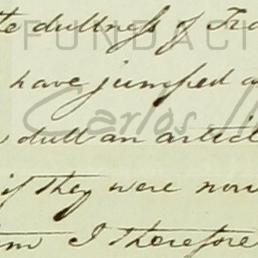 te dullness of Tra
FUNDACI
have jumped a
Carlos
dull an artic
if they were now
I therefore